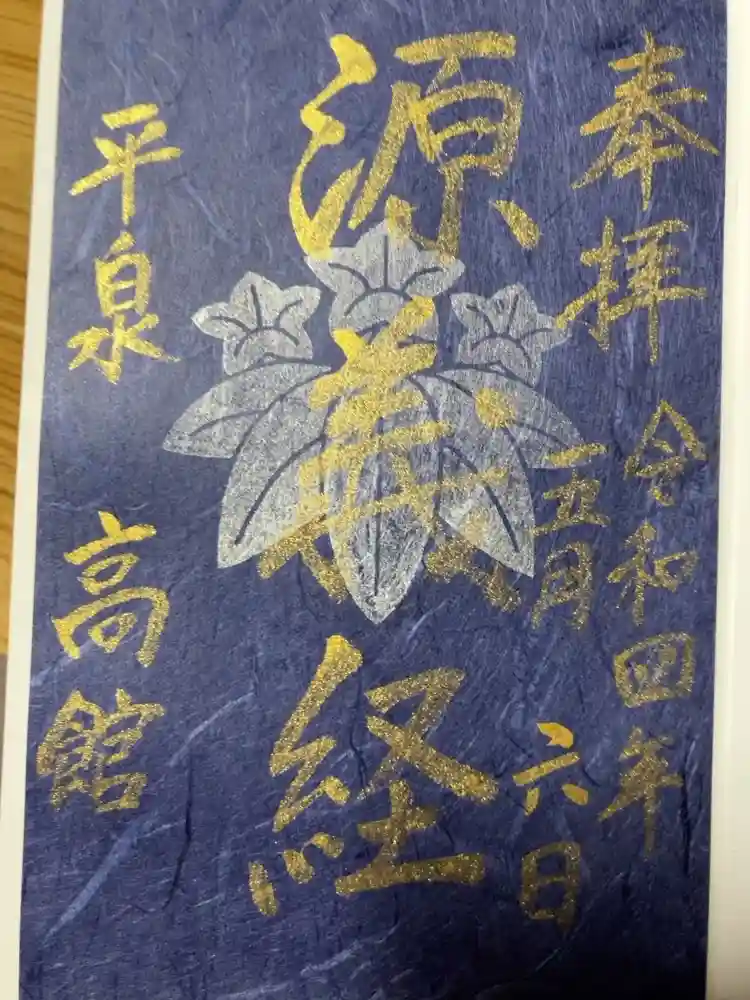 奉拝
令和四年
五月六日
源義経
平泉
高館